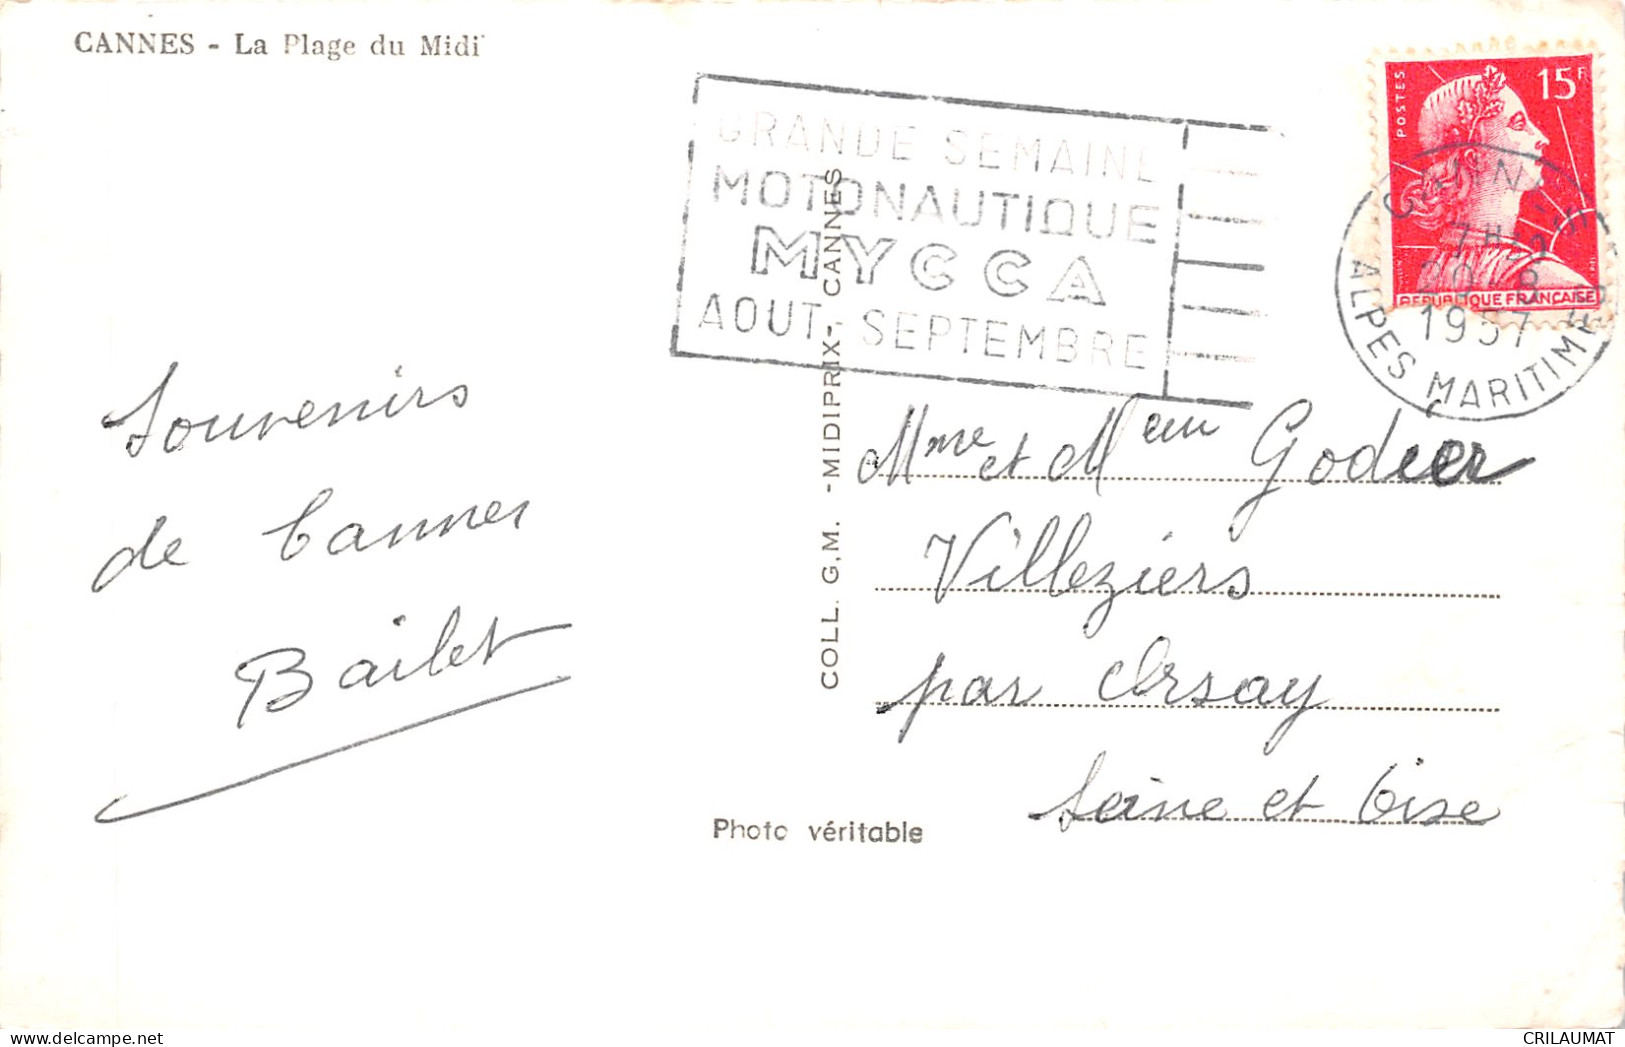 CANNES - La Plage du Midi
GRANDE SEMAINE
MOTONAUTIQUE
MYCCA
AOUT SEPTEMBRE
POSTES
15F
REPUBLIQUE FRANÇAISE
CANNES
7H
1957
ALPES MARITIMES
Souvenirs
de Cannes
Bailet
COLL. G.M. - MIDIPRIX - CANNES
Mme et Mr Godier
Villeziers
par Orsay
Seine et Oise
Photo véritable
CRILAUMAT